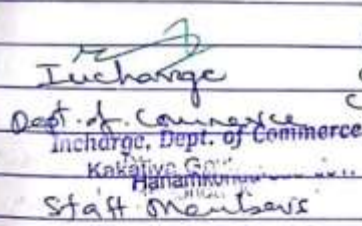 Incharge
Dept. of Commerce
Incharge, Dept. of Commerce
Kakatiya Go
Hanamkon
Staff Members